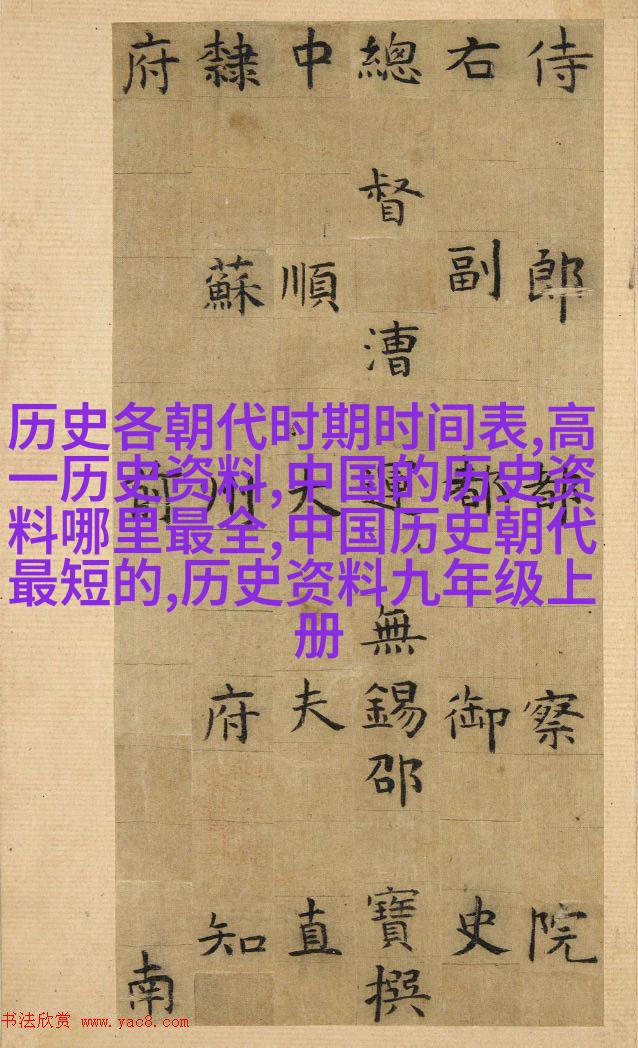 侍郎都察院
右副都御史
總督漕運無錫邵寶撰
中順大夫直
隸蘇州府知
府前南
历史各朝代时期时间表,高
一历史资料,中国的历史资
料哪里最全,中国历史朝代
最短的,历史资料九年级上
册
书法欣赏 www.yac8.com